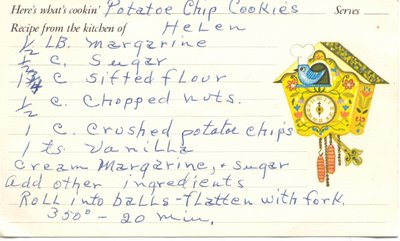 Here's what's cookin' Potatoe Chip Cookies Serves
Recipe from the kitchen of Helen
1/2 LB. Margarine
1/2 C. Sugar
C Sifted flour
1/2 C. Chopped nuts.
1 C. Crushed potatoe chips
1 ts Vanilla
Cream Margarine, + sugar
add other ingredients
Roll into balls - flatten with fork.
350° - 20 min.